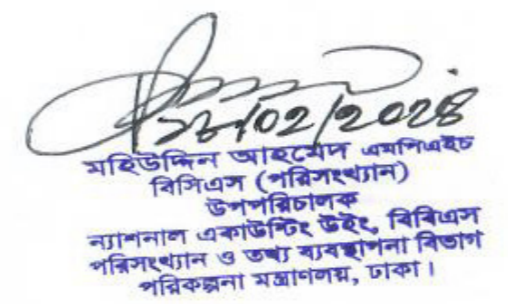 ১৮/০২/২০২৪
মহিউদ্দিন আহমেদ এমপিএইচ
বিসিএস (পরিসংখ্যান)
উপপরিচালক
ন্যাশনাল একাউন্টিং উইং, বিবিএস
পরিসংখ্যান ও তথ্য ব্যবস্থাপনা বিভাগ
পরিকল্পনা মন্ত্রাণালয়, ঢাকা।